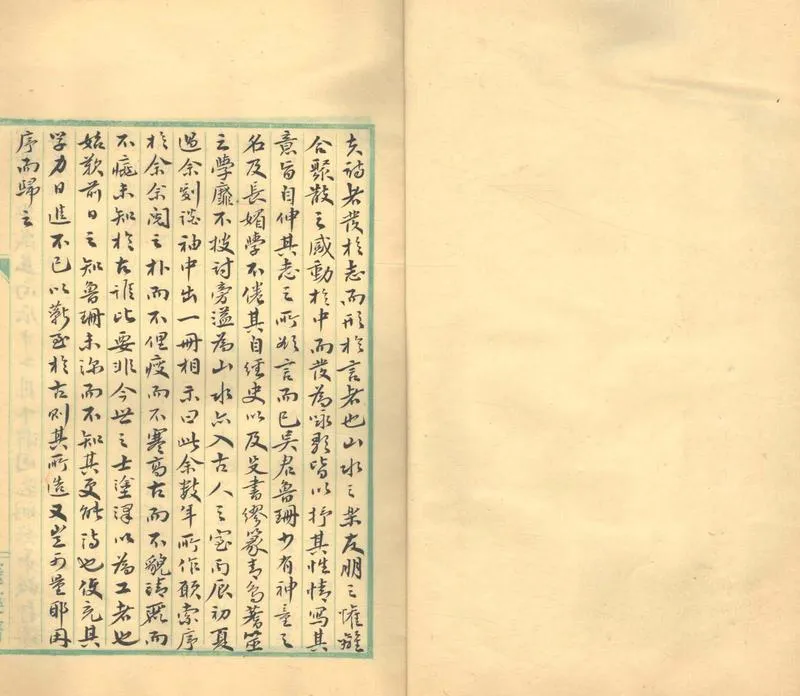 夫詩者發於志而形於言者也山水之樂友朋之懽離
合聚散之感動於中而發為咏歌皆以抒其性情寫其
意旨自伸其志之所欲言而已吳君魯珊少有神童之
名及長媚學不倦其自經史以及爻書繆篆青烏蓍筮
之學靡不搜討旁溢為山水亦入古人之室丙辰初夏
過余劇談袖中出一冊相示曰此余數年所作願索序
於余余閱之朴而不俚瘦而不寒高古而不貌靖雅而
不癡未知於古誰比要非今世之士塗澤以為工者也
始歎前日之知魯珊未深而不知其更能詩也使充其
學力日進不已以蘄至於古則其所造又豈可量耶因
序而歸之